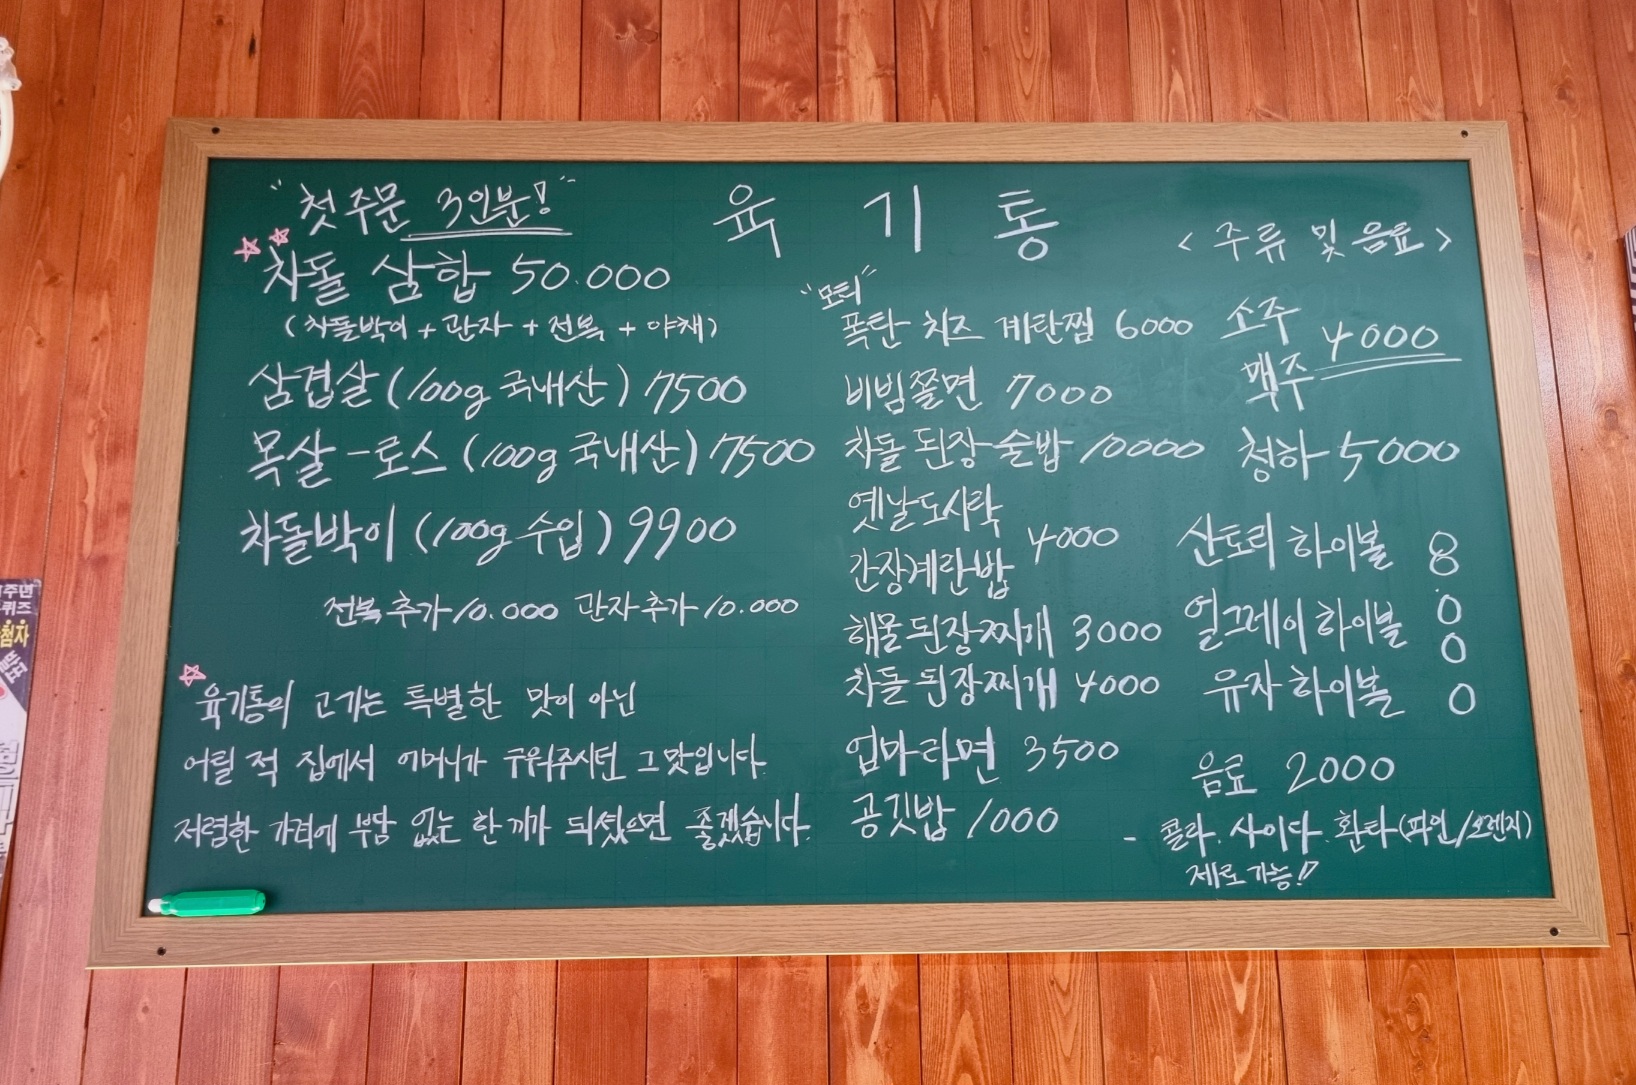 육 기 통
"첫 주문 3인분!"
차돌 삼합 50.000
(차돌박이 + 관자 + 전복 + 야채)
삼겹살 (100g 국내산) 7500
목살 - 로스 (100g 국내산) 7500
차돌박이 (100g 수입) 9900
전복 추가 10.000 관자 추가 10.000
육기통의 고기는 특별한 맛이 아닌
어릴 적 집에서 어머니가 구워주시던 그 맛입니다.
저렴한 가격에 부담 없는 한 끼가 되셨으면 좋겠습니다.
"모티"
폭탄 치즈 계란찜 6000
비빔쫄면 7000
차돌 된장 술밥 10000
옛날도시락
간장계란밥 4000
해물 된장찌개 3000
차돌 된장찌개 4000
엄마라면 3500
공깃밥 1000
< 주류 및 음료 >
소주
맥주 4000
청하 5000
산토리 하이볼
얼그레이 하이볼
유자 하이볼
8000
음료 2000
- 콜라. 사이다. 환타 (파인/오렌지)
제로 가능!!
주년
퀴즈
첨자
발표